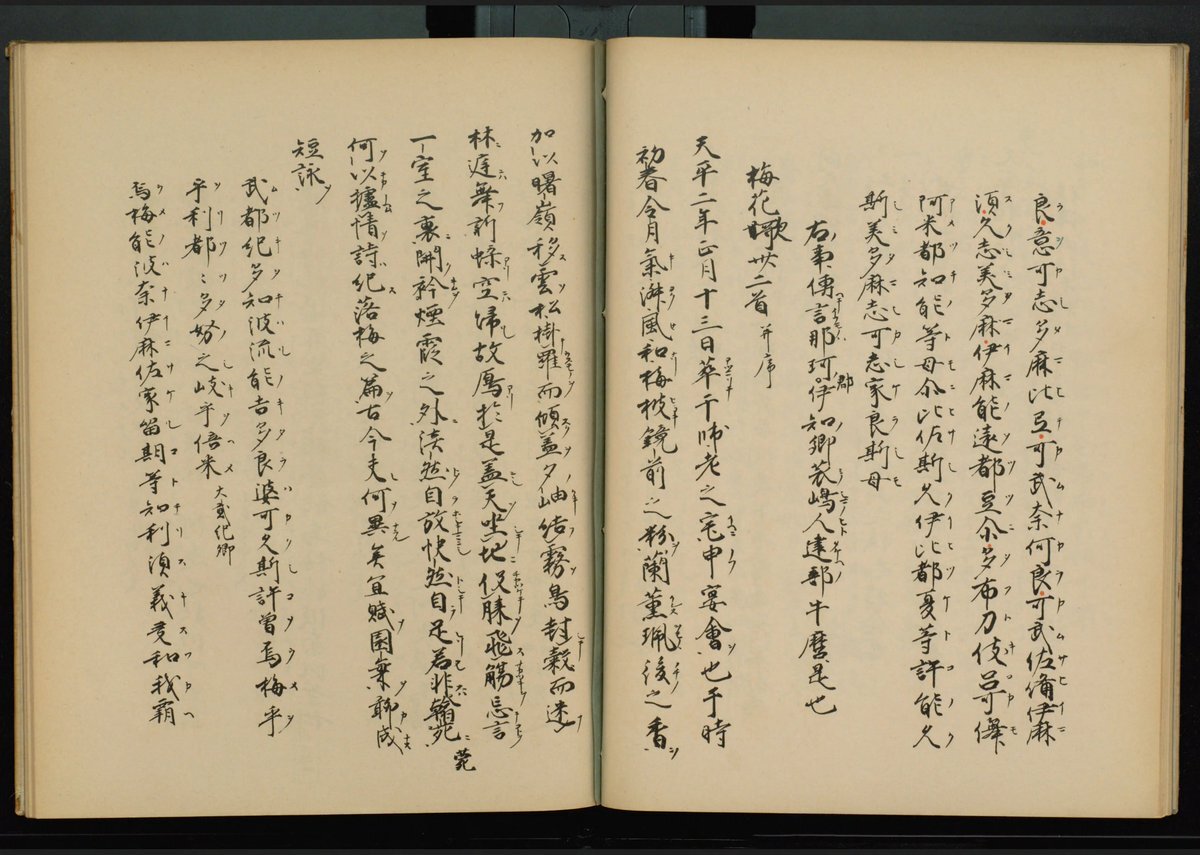 良意可志多麻比弖可武奈何良可武佐備伊麻
須久志美多麻伊麻能遠都豆尓多布刀伎呂可儛
阿米都知能等母尓比佐斯久伊比都夏等許能久
斯美多麻志可志家良斯母
右事傳言那珂伊知郷蓑嶋人建部牛麿是也
郡
梅花歌卅二首 并序
天平二年正月十三日萃于帥老之宅申宴會也于時
初春令月氣淋風和梅披鏡前之粉蘭薫珮後之香
加以曙嶺移雲松掛羅而傾盖夕岫結霧鳥封縠而迷
林庭舞新蝶空帰故鴈於是盖天坐地促膝飛觴忘言
一室之裏開衿煙霞之外淡然自放快然自足若非翰苑
菀
何以攄情詩紀落梅之篇古今夫何異矣宜賦園梅聊成
短詠
武都紀多知波流能吉多良婆可久斯許曽烏梅乎
乎利都々多努之岐乎倍米 大貳紀卿
烏梅能波奈伊麻佐家留期等知利須義受和我覇